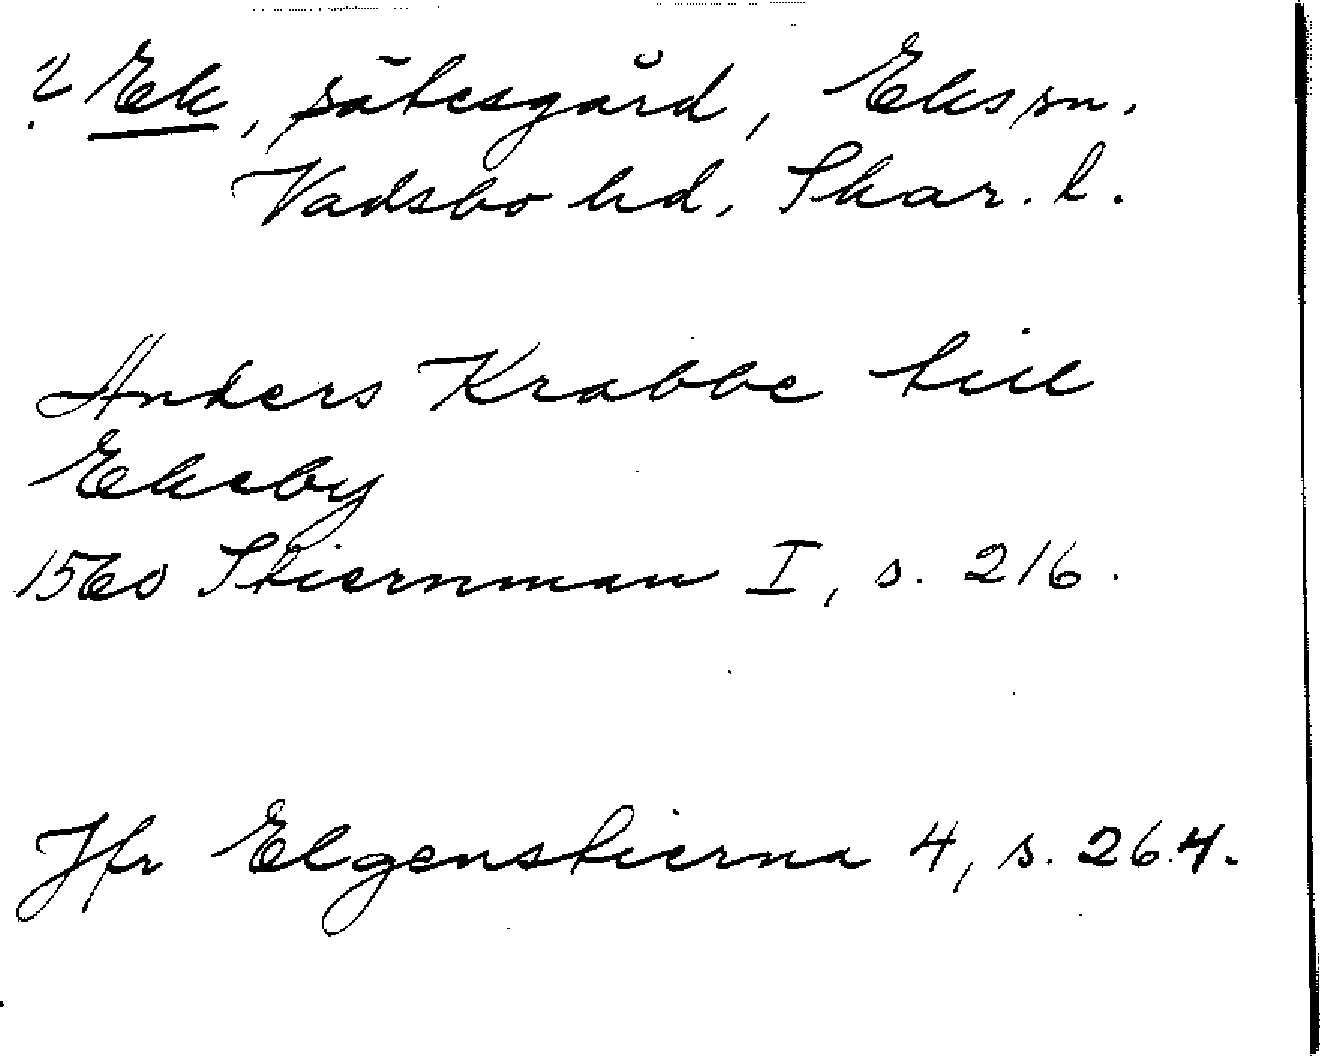 ? Ek, sätesgård, Eks sn.
Vadsbo hd, Skar. l.
Anders Krabbe till
Ekeby
1560 Stiernman I, s. 216.
Jfr Elgenstierna 4, s. 264.